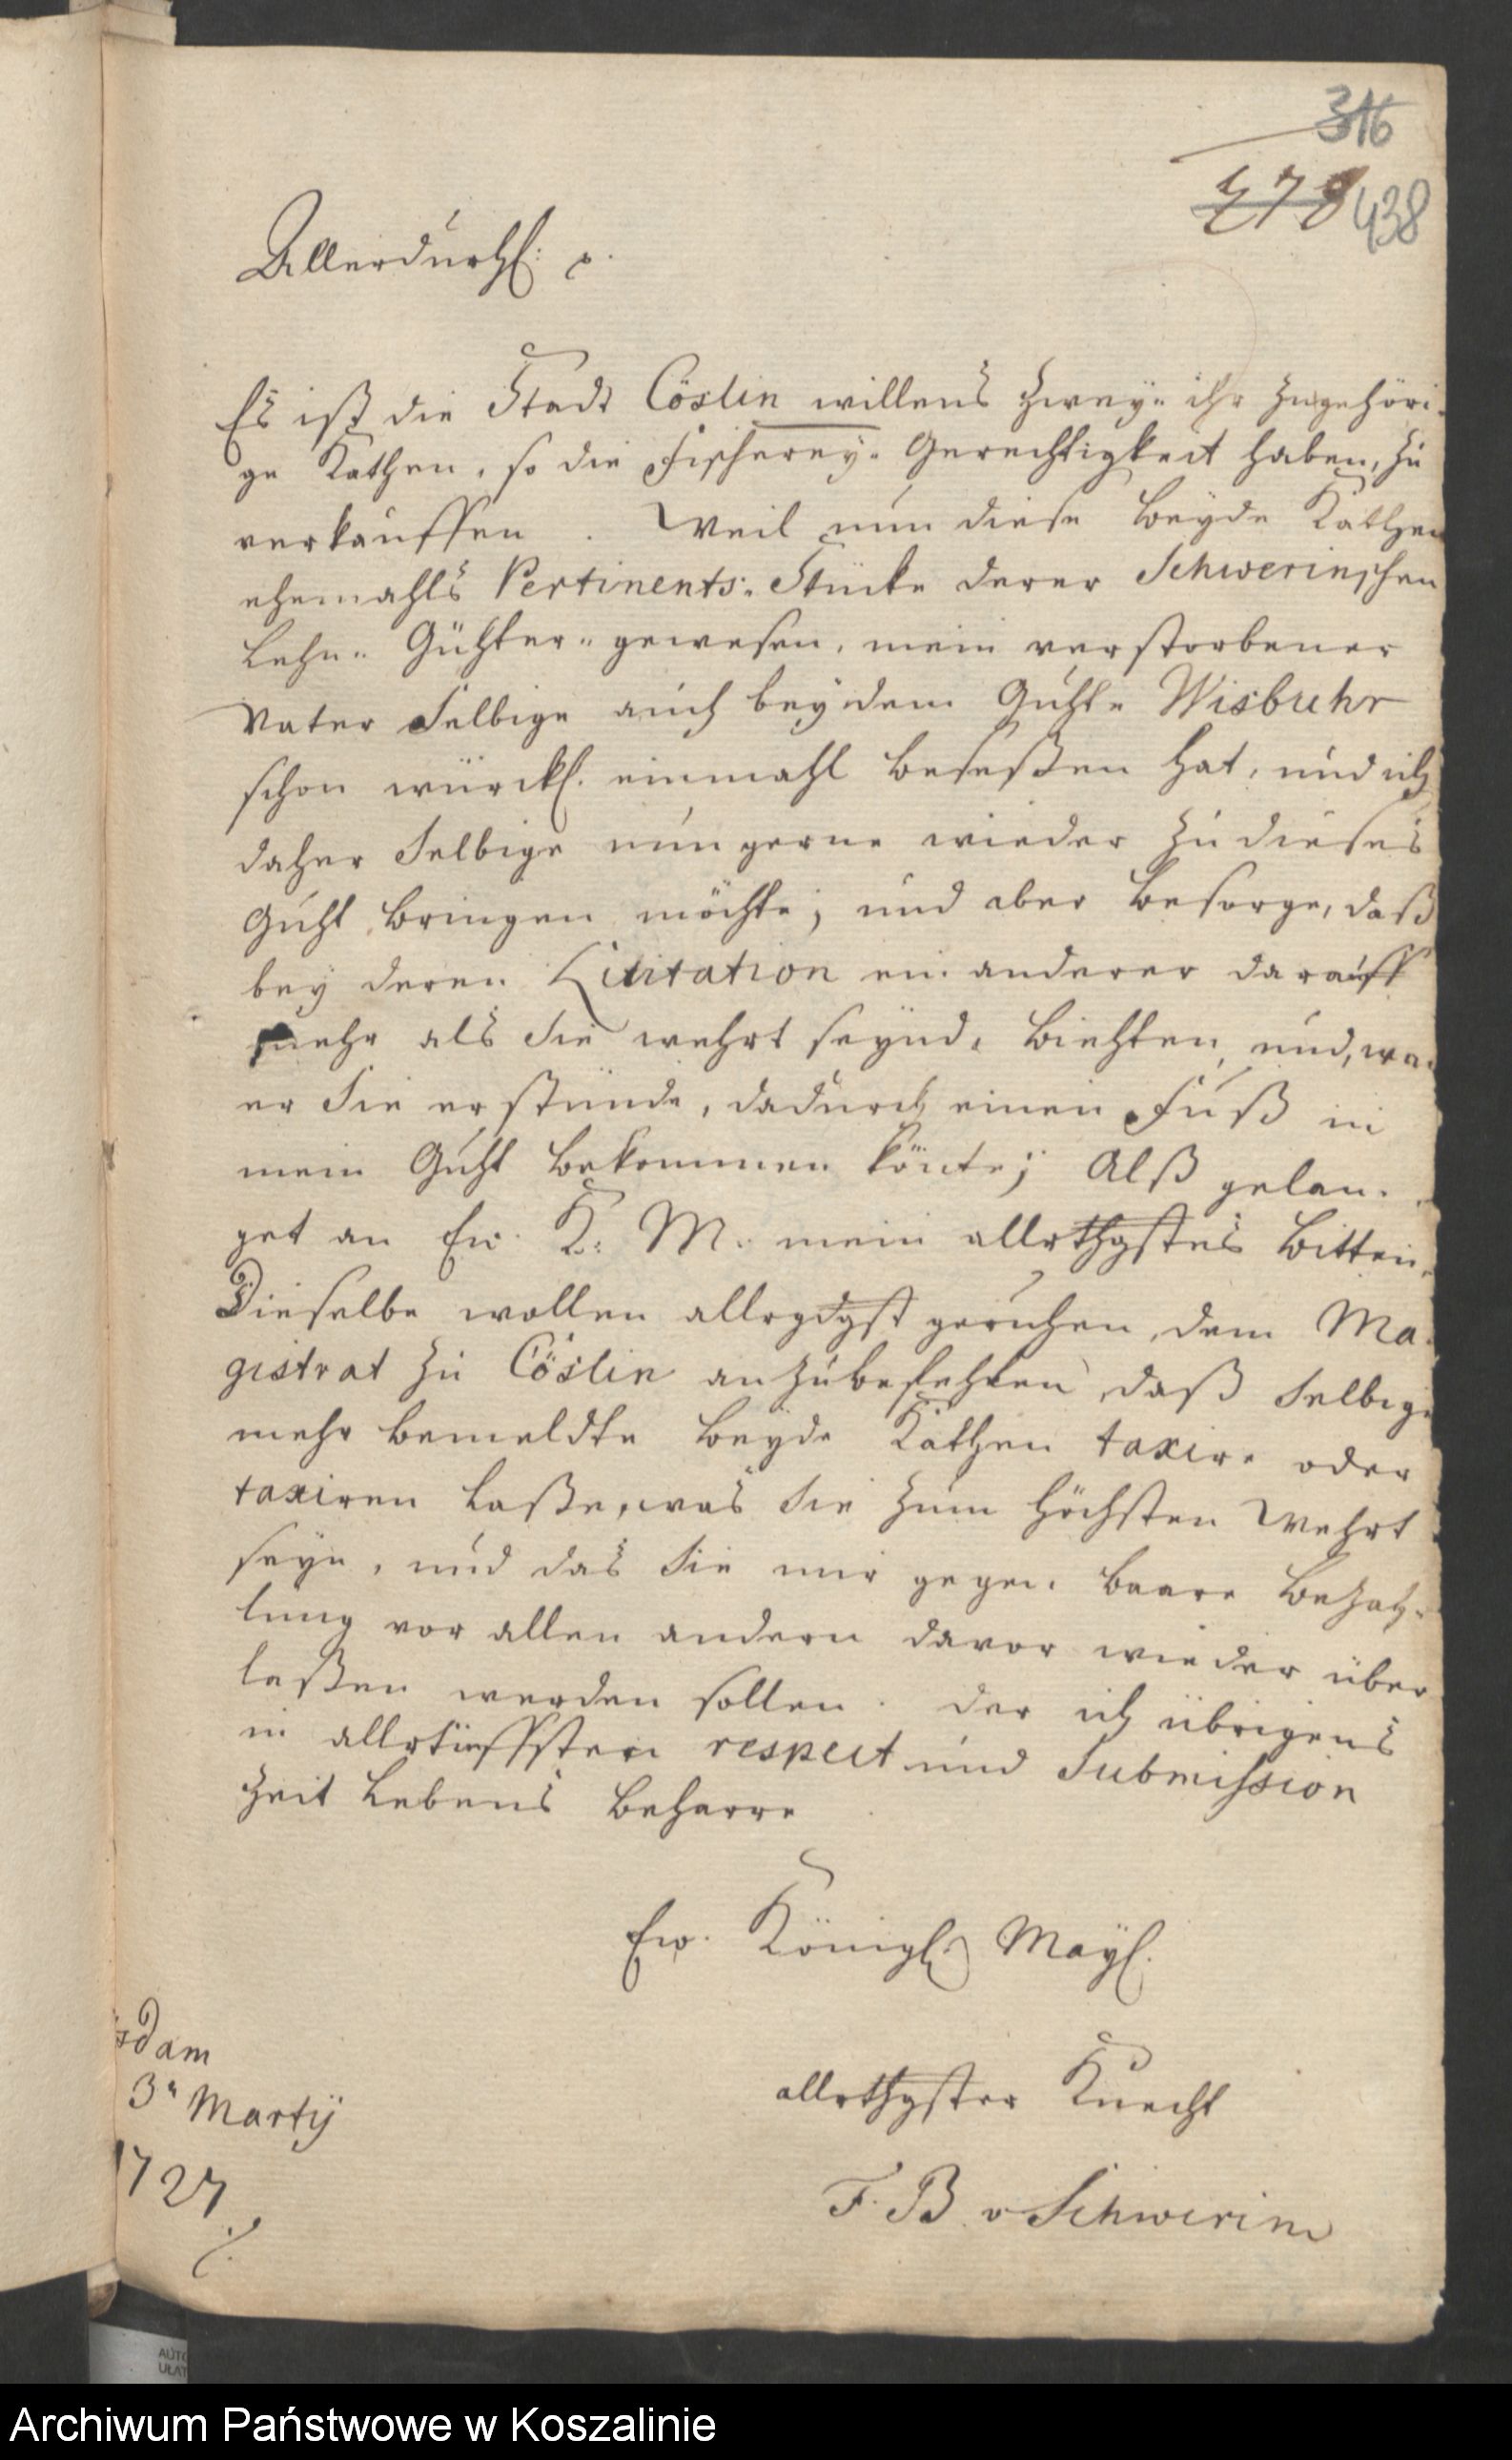 316
478 438
Allerdurchl: p.
Es ist die Stadt Cöslin willens zwey ihr zugehöri-
ge Kathen, so die Fischerey-Gerechtigkeit haben, zu
verkauffen. Weil nun diese beyde Kathen
ehemahls Pertinents-Stücke derer Schwerinschen
Lehn-Gühter gewesen, mein verstorbener
Vater Selbige auch bey dem Guhte Wisbuhr
schon würckl. einmahl beseßen hat, und ich
daher Selbige nun gerne wieder zu dieses
Guht bringen möchte; und aber besorge, daß
bey deren Licitation ein anderer darauff
mehr als Sie wehrt seynd, biehten, und, wa
er Sie erstünde, dadurch einen Fuß in
mein Guht bekommen könte; Alß gelan-
get an Ew. K. M. mein allrthgstes bitten,
Dieselbe wollen allrgdgst geruhen, dem Ma-
gistrat zu Cöslin anzubefehlen, daß Selbige
mehr bemeldte beyde Kathen taxire oder
taxiren laße, was Sie zum höchsten wehrt
seyn, und das Sie mir gegen baare bezah-
lung vor allen andern davor wieder über
laßen werden sollen. Der ich übrigens
in allrtieffsten respect und Submission
Zeit Lebens beharre
Ew. Königl. Mayl.
dam
3n Martÿ
1727
allrthgster Knecht
F. B. v Schwerin
AUTO
UŁAT
Archiwum Państwowe w Koszalinie